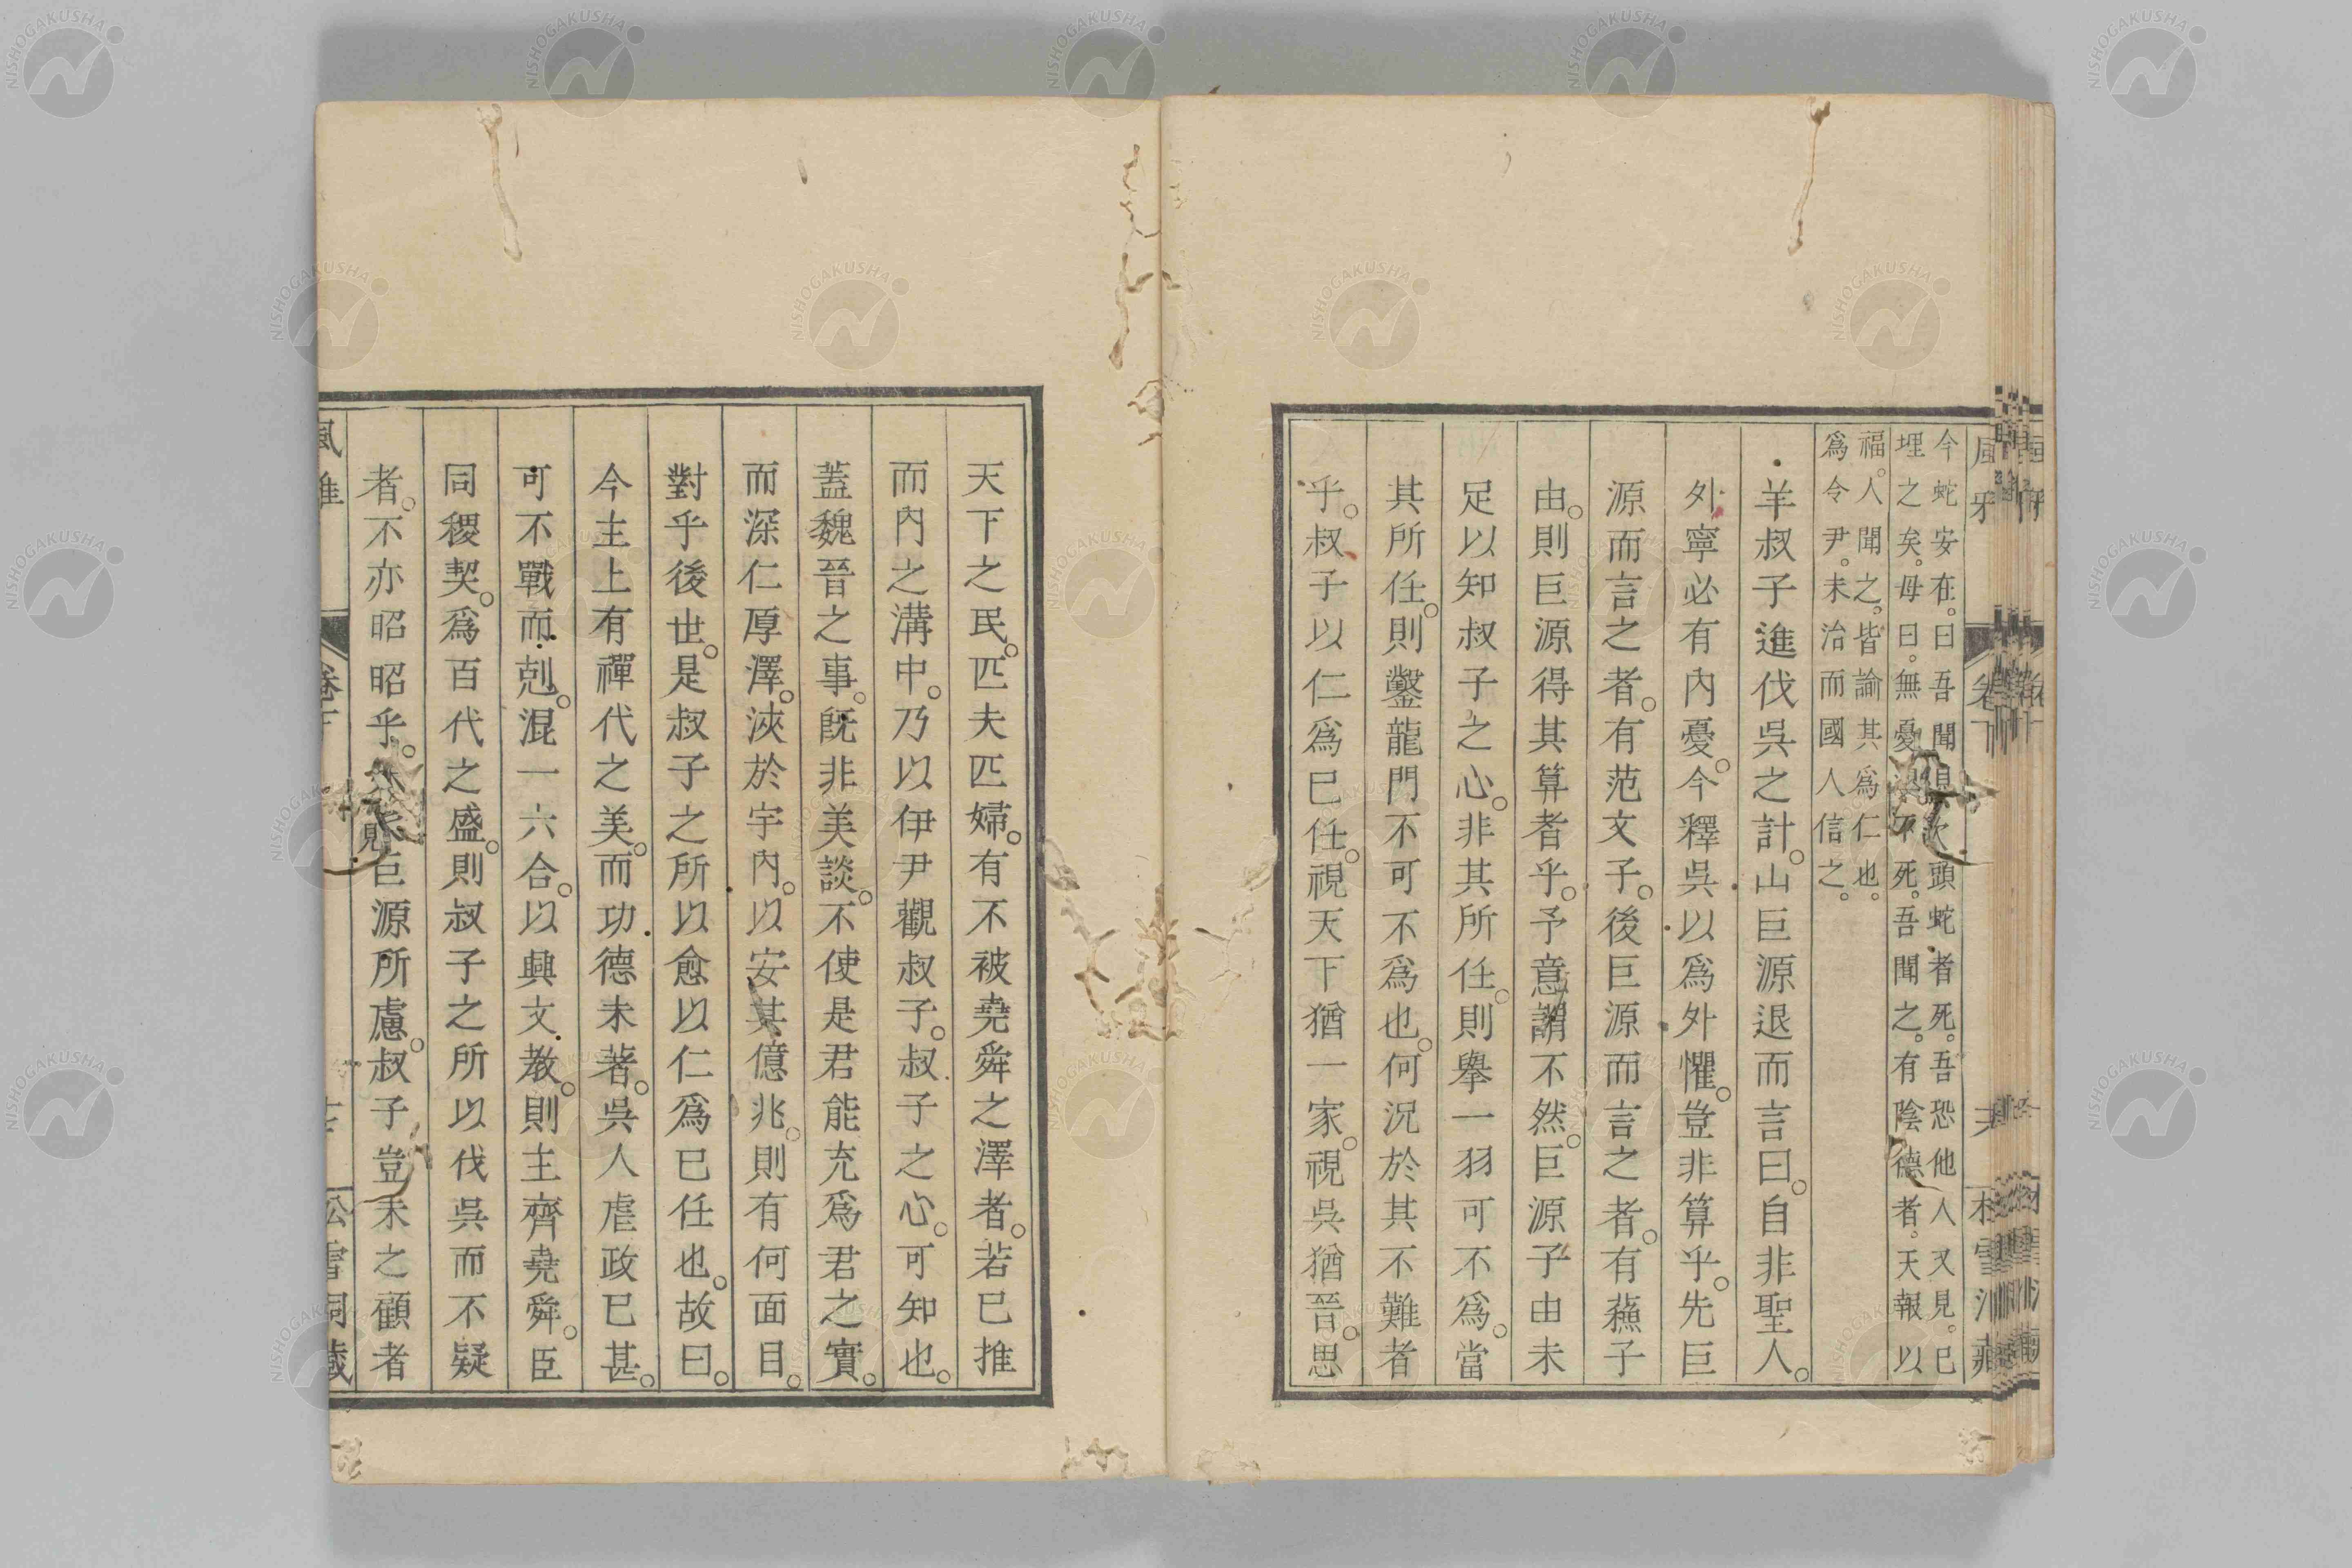 今蛇安在。曰吾聞見㒳頭蛇者死。吾恐他人又見。已
埋之矣。母曰。無憂。汝不死。吾聞之。有陰德者。天報以
福。人聞之。皆諭其爲仁也。
爲令尹。未治而國人信之。
羊叔子進伐吳之計。山巨源退而言曰。自非聖人。
外寧必有內憂。今釋吳以爲外懼。豈非算乎。先巨
源而言之者。有范文子。後巨源而言之者。有蘓子
由。則巨源得其算者乎。予意謂不然。巨源子由未
足以知叔子之心。非其所任。則擧一羽可不爲。當
其所任。則鑿龍門不可不爲也。何況於其不難者
乎。叔子以仁爲巳任。視天下猶一家。視吳猶晉。思
天下之民。匹夫匹婦。有不被堯舜之澤者。若已推
而內之溝中。乃以伊尹觀叔子。叔子之心。可知也。
蓋魏晉之事。旣非美談。不使是君能充爲君之實。
而深仁厚澤。浹於宇內。以安其億兆。則有何面目。
對乎後世。是叔子之所以愈以仁爲巳任也。故曰。
今主上有禪代之美。而功德未著。吳人虐政已甚。
可不戰而剋。混一六合。以興文教。則主齊堯舜。臣
同稷契。爲百代之盛。則叔子之所以伐吳而不疑
者。不亦昭昭乎。巨源所慮。叔子豈未之顧者